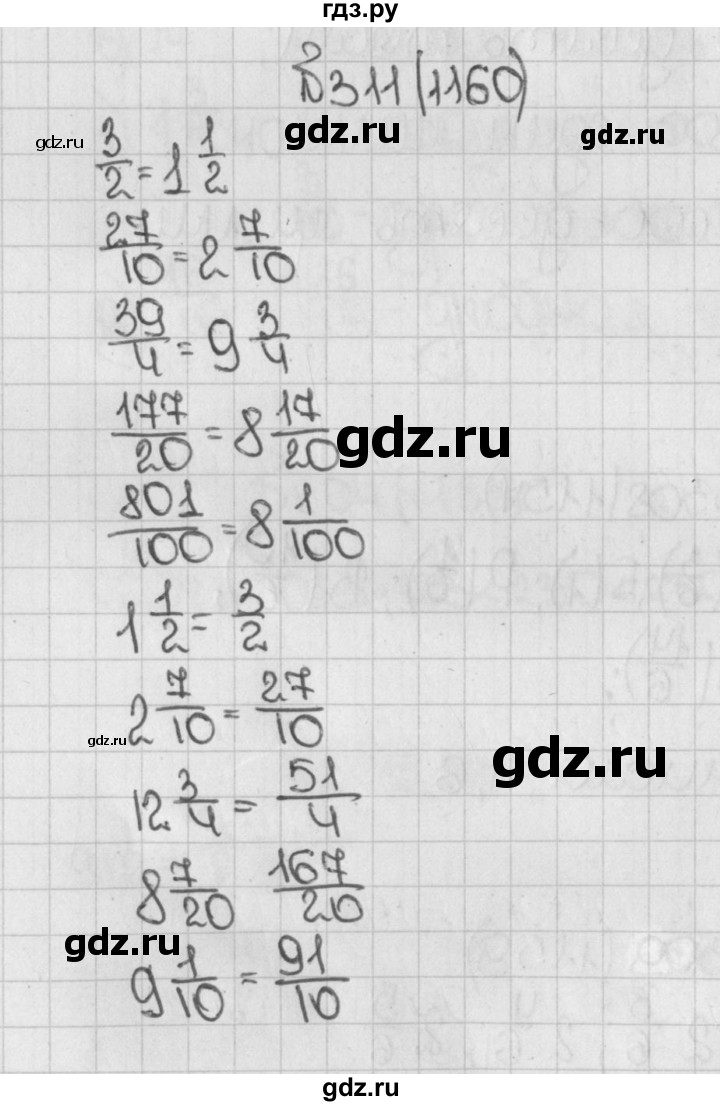 гдз.ру
№ 311 (1160)
gdz.ru
gdz.ru
gdz.ru
3/2 = 1 1/2
27/10 = 2 7/10
39/4 = 9 3/4
177/20 = 8 17/20
gdz.ru
801/100 = 8 1/100
1 1/2 = 3/2
2 7/10 = 27/10
gdz.ru
gdz.ru
12 3/4 = 51/4
8 7/20 167/20
gdz.ru
9 1/10 = 91/10
gdz.ru